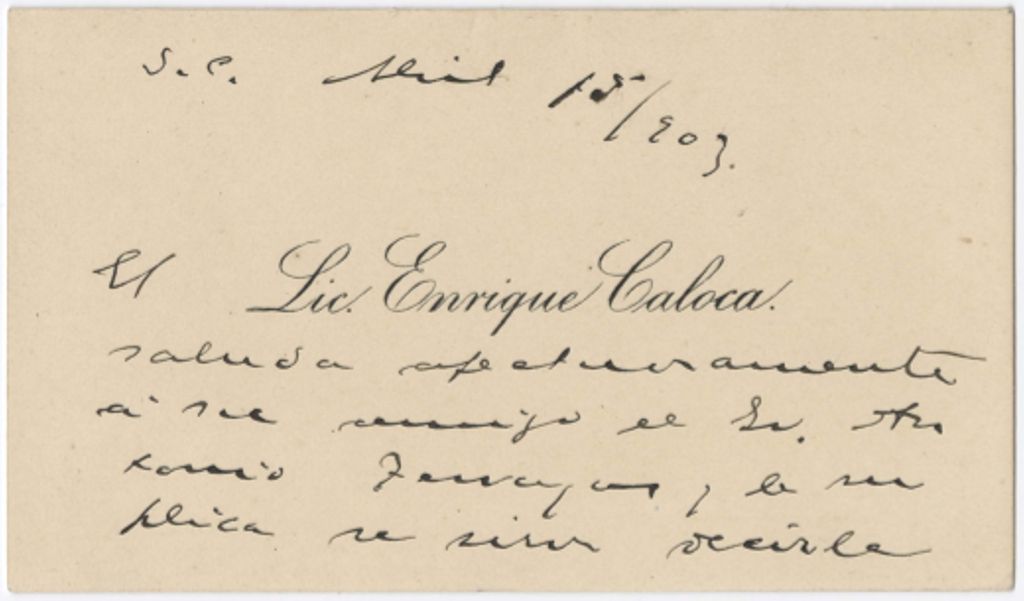 S. C. Abril 15/903.
El Lic. Enrique Caloca.
saluda afectuosamente
á su amigo el Sr. An
tonio y le su
plica se sirva decirle